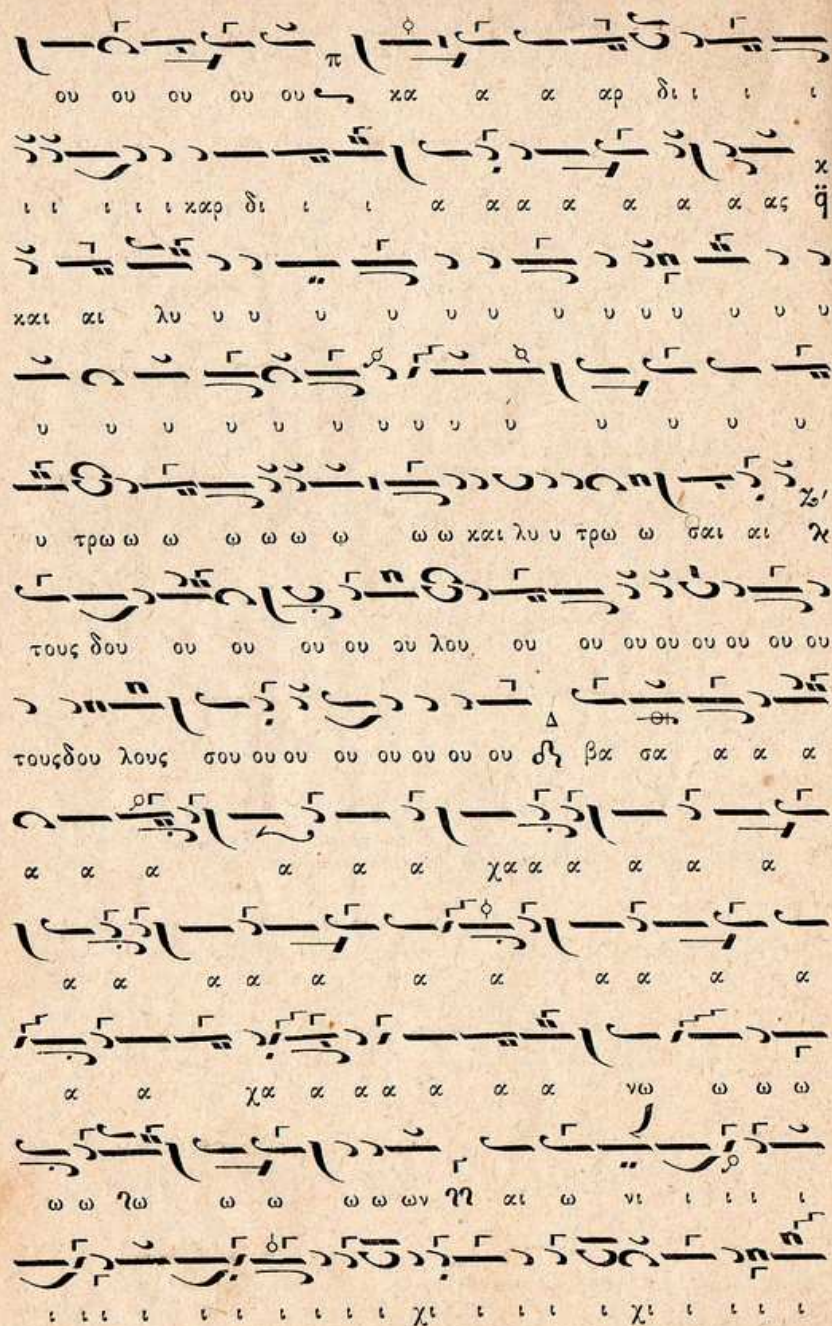 ου ου ου ου ου κα α α αρ δι ι ι ι
ι ι ι ι ι καρ δι ι ι α α α α α α α ας
και αι λυ υ υ υ υ υ υ υ υ υ υ υ υ υ
υ υ υ υ υ υ υ υ υ υ υ υ υ υ
υ τρω ω ω ω ω ω ω ω ω και λυ υ τρω ω σαι αι
τους δου ου ου ου ου ου λου ου ου ου ου ου ου ου ου
τους δου λους σου ου ου ου ου ου ου ου βα σα α α α
α α α α α α χα α α α α α
α α α α α α α α α α α
α α χα α α α α α α νω ω ω ω
ω ω ω ω ω ω ω ων αι ω νι ι ι ι ι
ι ι ι ι ι ι ι ι ι ι χι ι ι ι ι χι ι ι ι ι